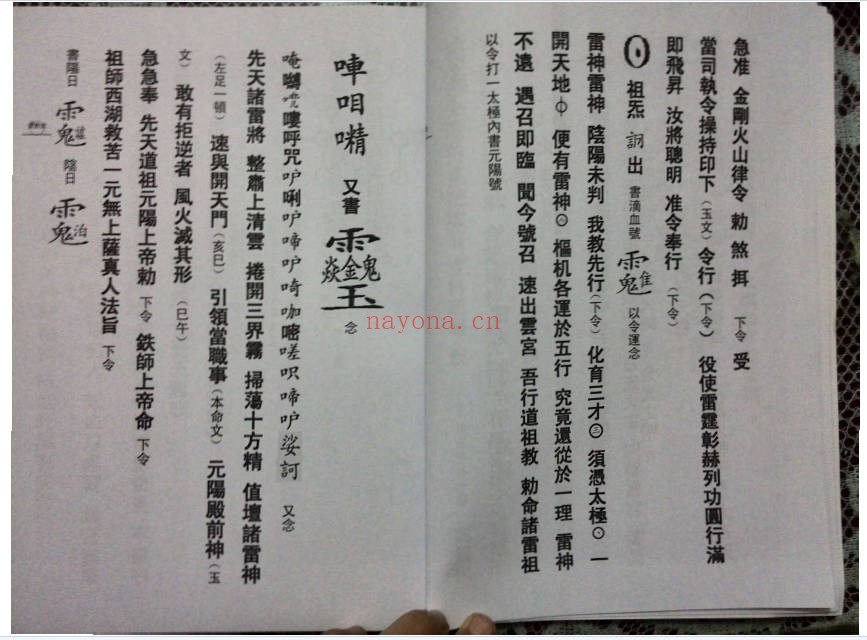 急准　金剛火山律令　勅　煞　挕　下令　受
當司執令操持印下（玉文）令行（下令）役使雷霆彰赫列功圓行滿
即飛昇　汝將聰明　准令奉行（下令）
祖炁　出　書滴血號　以令運念
雷神雷神　陰陽未判　我教先行（下令）化育三才㊂　須憑太極⊙　一
開天地　便有雷神⊙　樞机各運於五行　究竟還從於一理　雷神
不遠　遇召即臨　聞今號召　速出雲宮　吾行道祖教　勅命諸雷祖
以令打一太極內書元陽號
㖷　呾　又書　念
唵　嘍呼咒　唏　啼　㗨　咖嘧嗟呎　啼　娑訶　又念
先天諸雷將　整肅上清雲　捲開三界霧　掃蕩十方精　值壇諸雷神
（左足一頓）速與開天門（亥巳）引領當職事（本命文）元陽殿前神（玉
文）敢有拒逆者　風火滅其形（巳午）
急急奉　先天道祖元陽上帝勅　下令　鉄師上帝命　下令
祖師西湖救苦一元無上薩真人法旨　下令
書陽日　陰日
nayona.cn